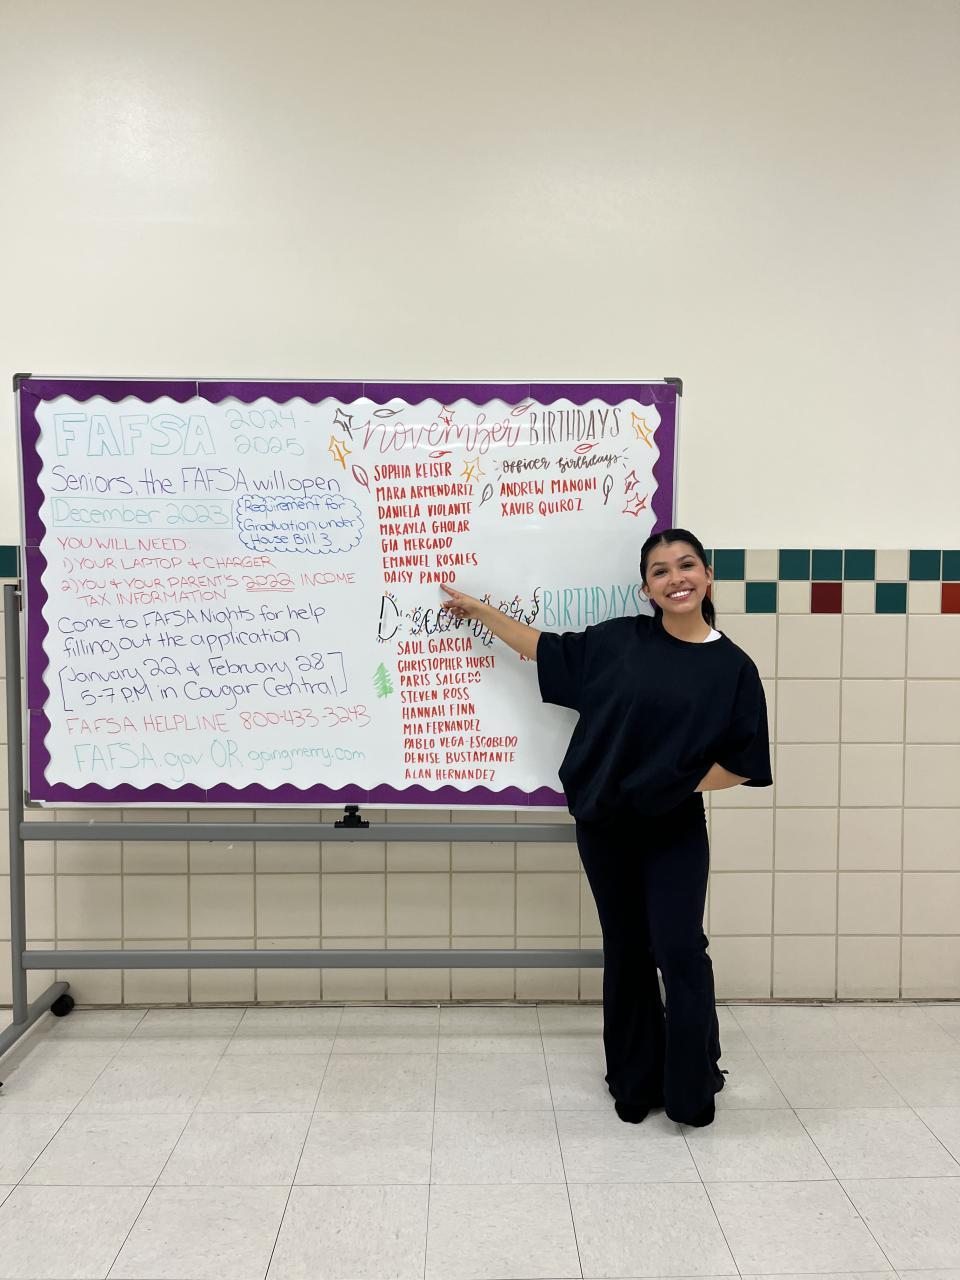 FAFSA 2024-
2025
Seniors, the FAFSA will open
December 2023
Requirement for
Graduation under
House Bill 3
YOU WILL NEED:
1) YOUR LAPTOP & CHARGER
2) YOU & YOUR PARENT'S 2022 INCOME
TAX INFORMATION
Come to FAFSA Nights for help
filling out the application
[January 22 & February 28
5-7 P.M in Cougar Central]
FAFSA HELPLINE 800-433-3243
FAFSA.gov OR goingmerry.com
november BIRTHDAYS
SOPHIA KEISTR
MARA ARMENDARIZ
DANIELA VIOLANTE
MAKAYLA GHOLAR
GIA MERCADO
EMANUEL ROSALES
DAISY PANDO
officer birthdays
ANDREW MANONI
XAVIB QUIROZ
December BIRTHDAYS
SAUL GARCIA
CHRISTOPHER HURST
PARIS SALGEDO
STEVEN ROSS
HANNAH FINN
MIA FERNANDEZ
PABLO VEGA-ESCOBEDO
DENISE BUSTAMANTE
ALAN HERNANDEZ